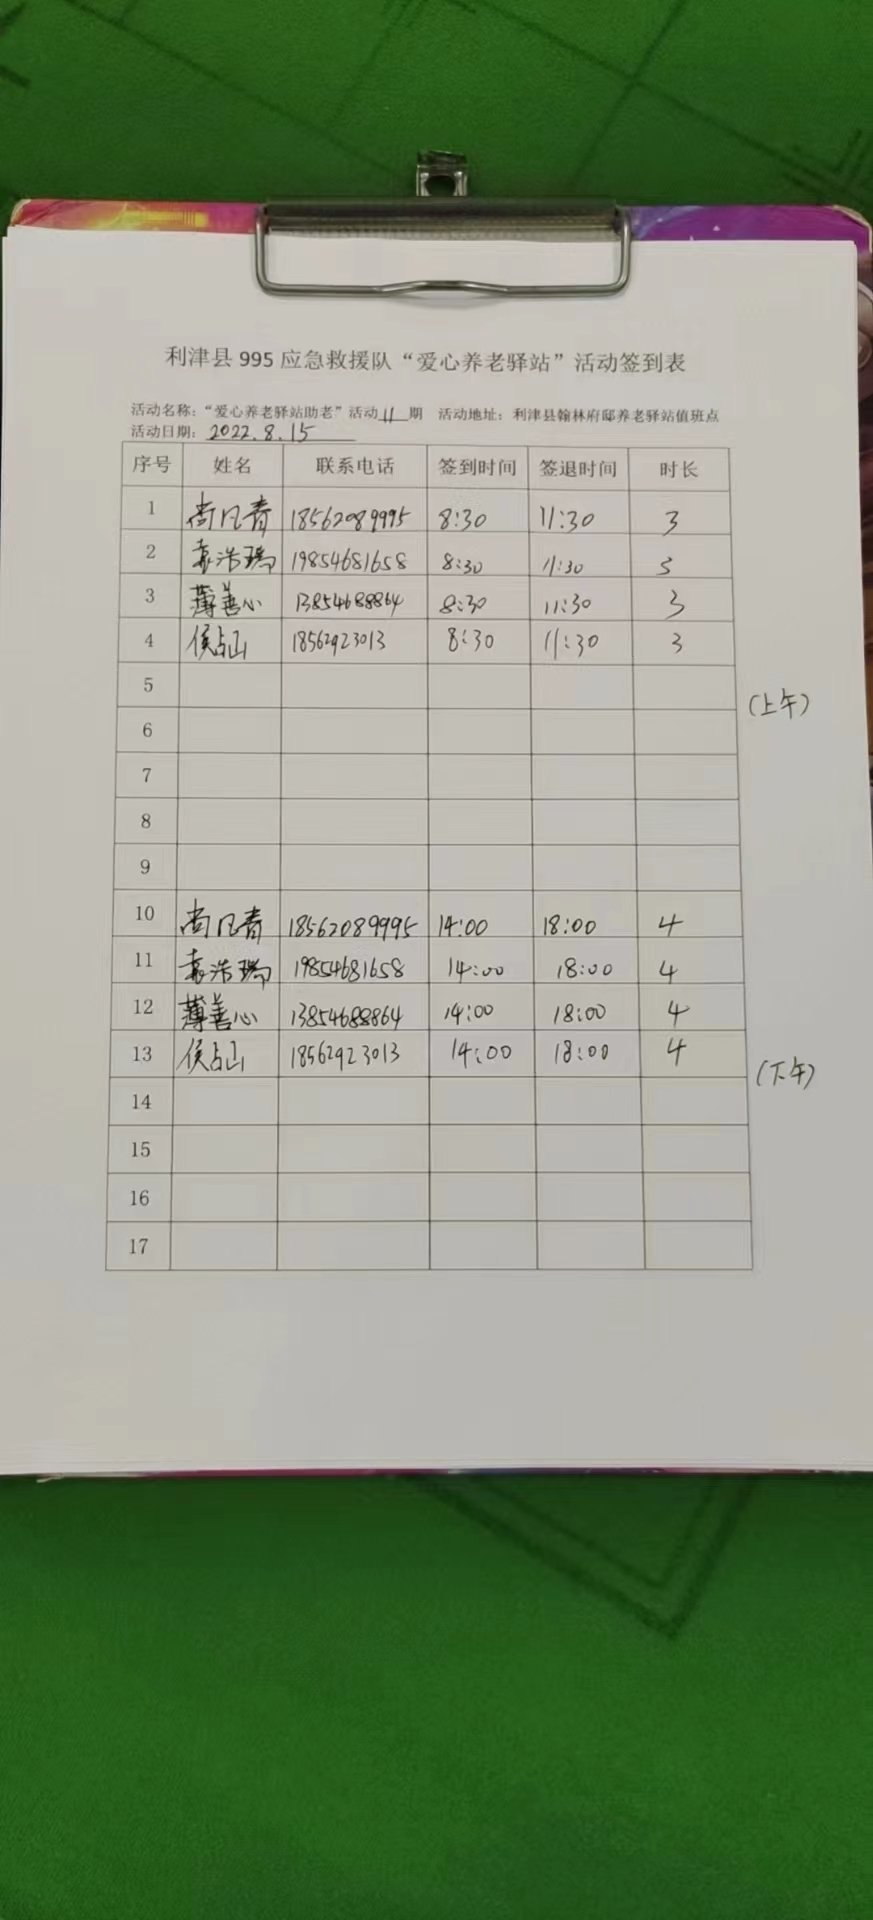 利津县 995 应急救援队“爱心养老驿站”活动签到表
活动名称：“爱心养老驿站助老”活动 11 期 活动地址：利津县翰林府邸养老驿站值班点
活动日期：2022.8.15
序号 姓名 联系电话 签到时间 签退时间 时长
1 尚凡青 18562089995 8:30 11:30 3
2 袁浩瑞 19854681658 8:30 11:30 3
3 薄善心 13854688864 8:30 11:30 3
4 侯占山 18562923013 8:30 11:30 3
5
(上午)
6
7
8
9
10 尚凡青 18562089995 14:00 18:00 4
11 袁浩瑞 19854681658 14:00 18:00 4
12 薄善心 13854688864 14:00 18:00 4
13 侯占山 18562923013 14:00 18:00 4
(下午)
14
15
16
17